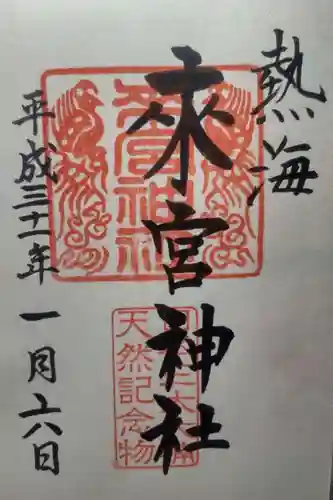 熱海
来宮神社
平成三十一年一月六日
来宮神社
天然記念物